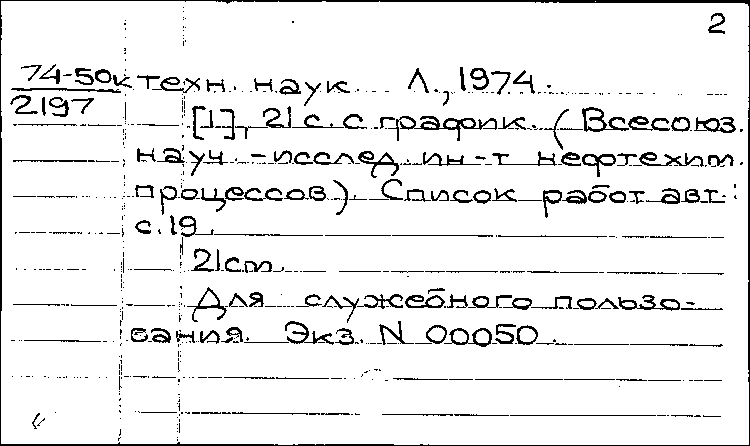 2
74-50к техн. наук Л., 1974.
2197
[1], 21 с. с график. (Всесоюз.
науч.-исслед. ин-т нефтехим.
процессов). Список работ авт.:
с. 19.
21 cm.
Для служебного пользо-
вания. Экз. N 00050.